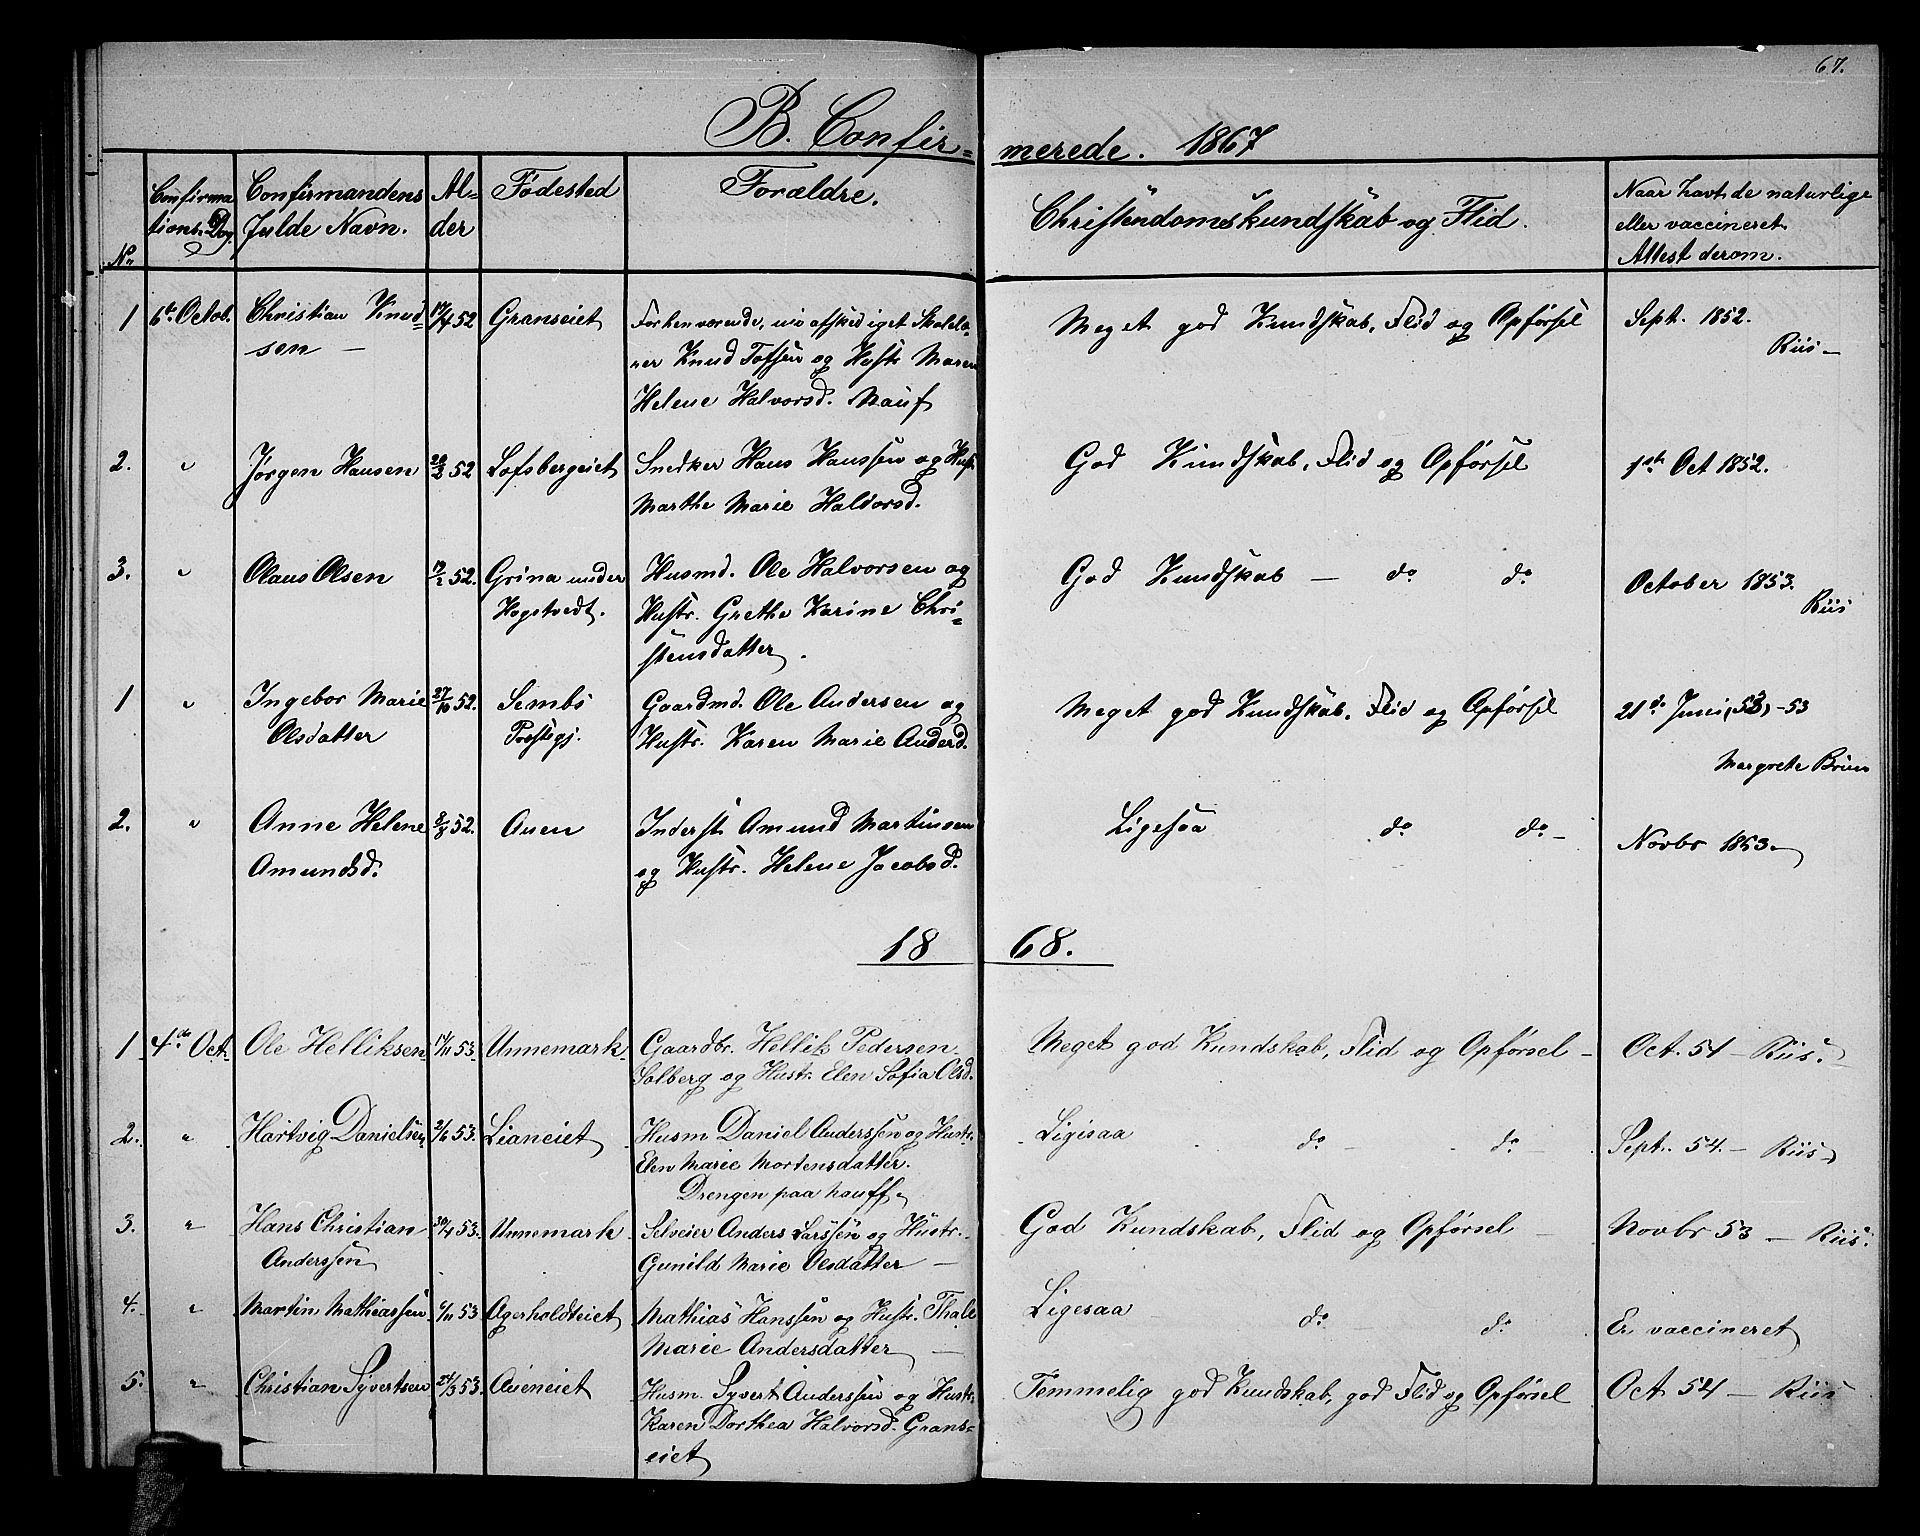 67.
B. Confir= merede. 1867
No
Confirma
tions. Dag.
Confirmandens
fulde Navn.
Al-
der
Fødested
Forældre.
Christendomskundskab og Flid.
Naar havt de naturlige
eller vaccineret.
Attest derom.
1 6te Octob. Christian Knud= 17/4 52 Granseiet
sen —
Forhenværende, nu afskediget Skolelæ-
rer Knud Tofsen og Hustr Maren
Helene Halvorsd. Nauf
Meget god Kundskab, Flid og Opførsel
Sept. 1852.
Riis —
2. " Jørgen Hansen 20/2 52 Lofsbergeiet
Snedker Hans Hanssen og Hust
Marthe Marie Haldorsd.
God Kundskab, Flid og Opførsel
1ste Oct 1852.
3. " Olaus Olsen 19/2 52. Grina under
Hogstvedt.
Husmd. Ole Halvorsen og
Hustr. Grethe Karine Chri=
stensdatter.
God Kundskab — do do
October 1853.
Riis
1 " Ingebor Marie 27/10 52. Sembs
Olsdatter Præstegj.
Gaardmd. Ole Andersen og
Hustr. Karen Marie Anderd.
Meget god Kundskab, Flid og Opførsel
21de Juni (53) -53
Margrete Bruun
2. " Anne Helene 8/8 52. Auen
Amundsd.
Inderst. Amund Martinsen
og Hustr. Helene Jacobsd.
Ligesaa do do —
Novbr 1853.
18 68.
1 4de Oct. Ole Helliksen 17/11 53. Unnemark.
Gaardbr. Hellik Pedersen
Solberg og Hustr. Elen Sofia Olsd.
Meget god Kundskab, Flid og Opførsel —
Oct. 54 — Riis.
2. " Hartvig Danielsen 2/6 53. Lianeiet
Husm Daniel Anderssen og Hustr.
Elen Marie Mortensdatter.
Drengen paa hauff.
Ligisaa do — do —
Sept. 54. — Riis
3. " Hans Christian 30/4 53. Unnemark
Anderssen
Selveier Anders Larssen og Hustr.
Gunild Marie Olsdatter —
God Kundskab, Flid og Opførsel —
Novbr 53 — Riis.
4. " Martin Mathiassen 6/11 53 Agerholdteiet
Mathias Hanssen og Hustr. Thale
Marie Andersdatter —
Ligesaa do do
Er vaccineret
5. " Christian Syvertsen 24/3 53. Aueneiet
Husm. Syvert Anderssen og Hustr
Karen Dorthea Halvorsd. Grans=
eiet
Temmelig god Kundskab, god Flid og Opførsel
Oct 54 — Riis